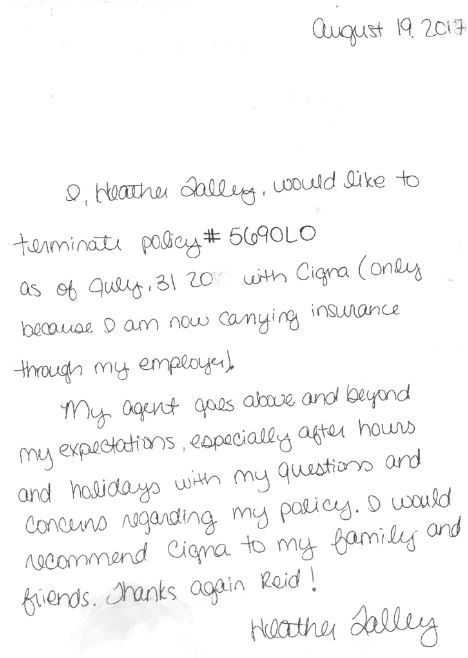 August 19, 2017
I, Heather Talley, would like to
terminate policy # 5690LO
as of July, 31 20 with Cigna (only
because I am now carrying insurance
through my employer).
My agent goes above and beyond
my expectations, especially after hours
and holidays with my questions and
concerns regarding my policy. I would
recommend Cigna to my family and
friends. Thanks again Reid!
Heather Talley